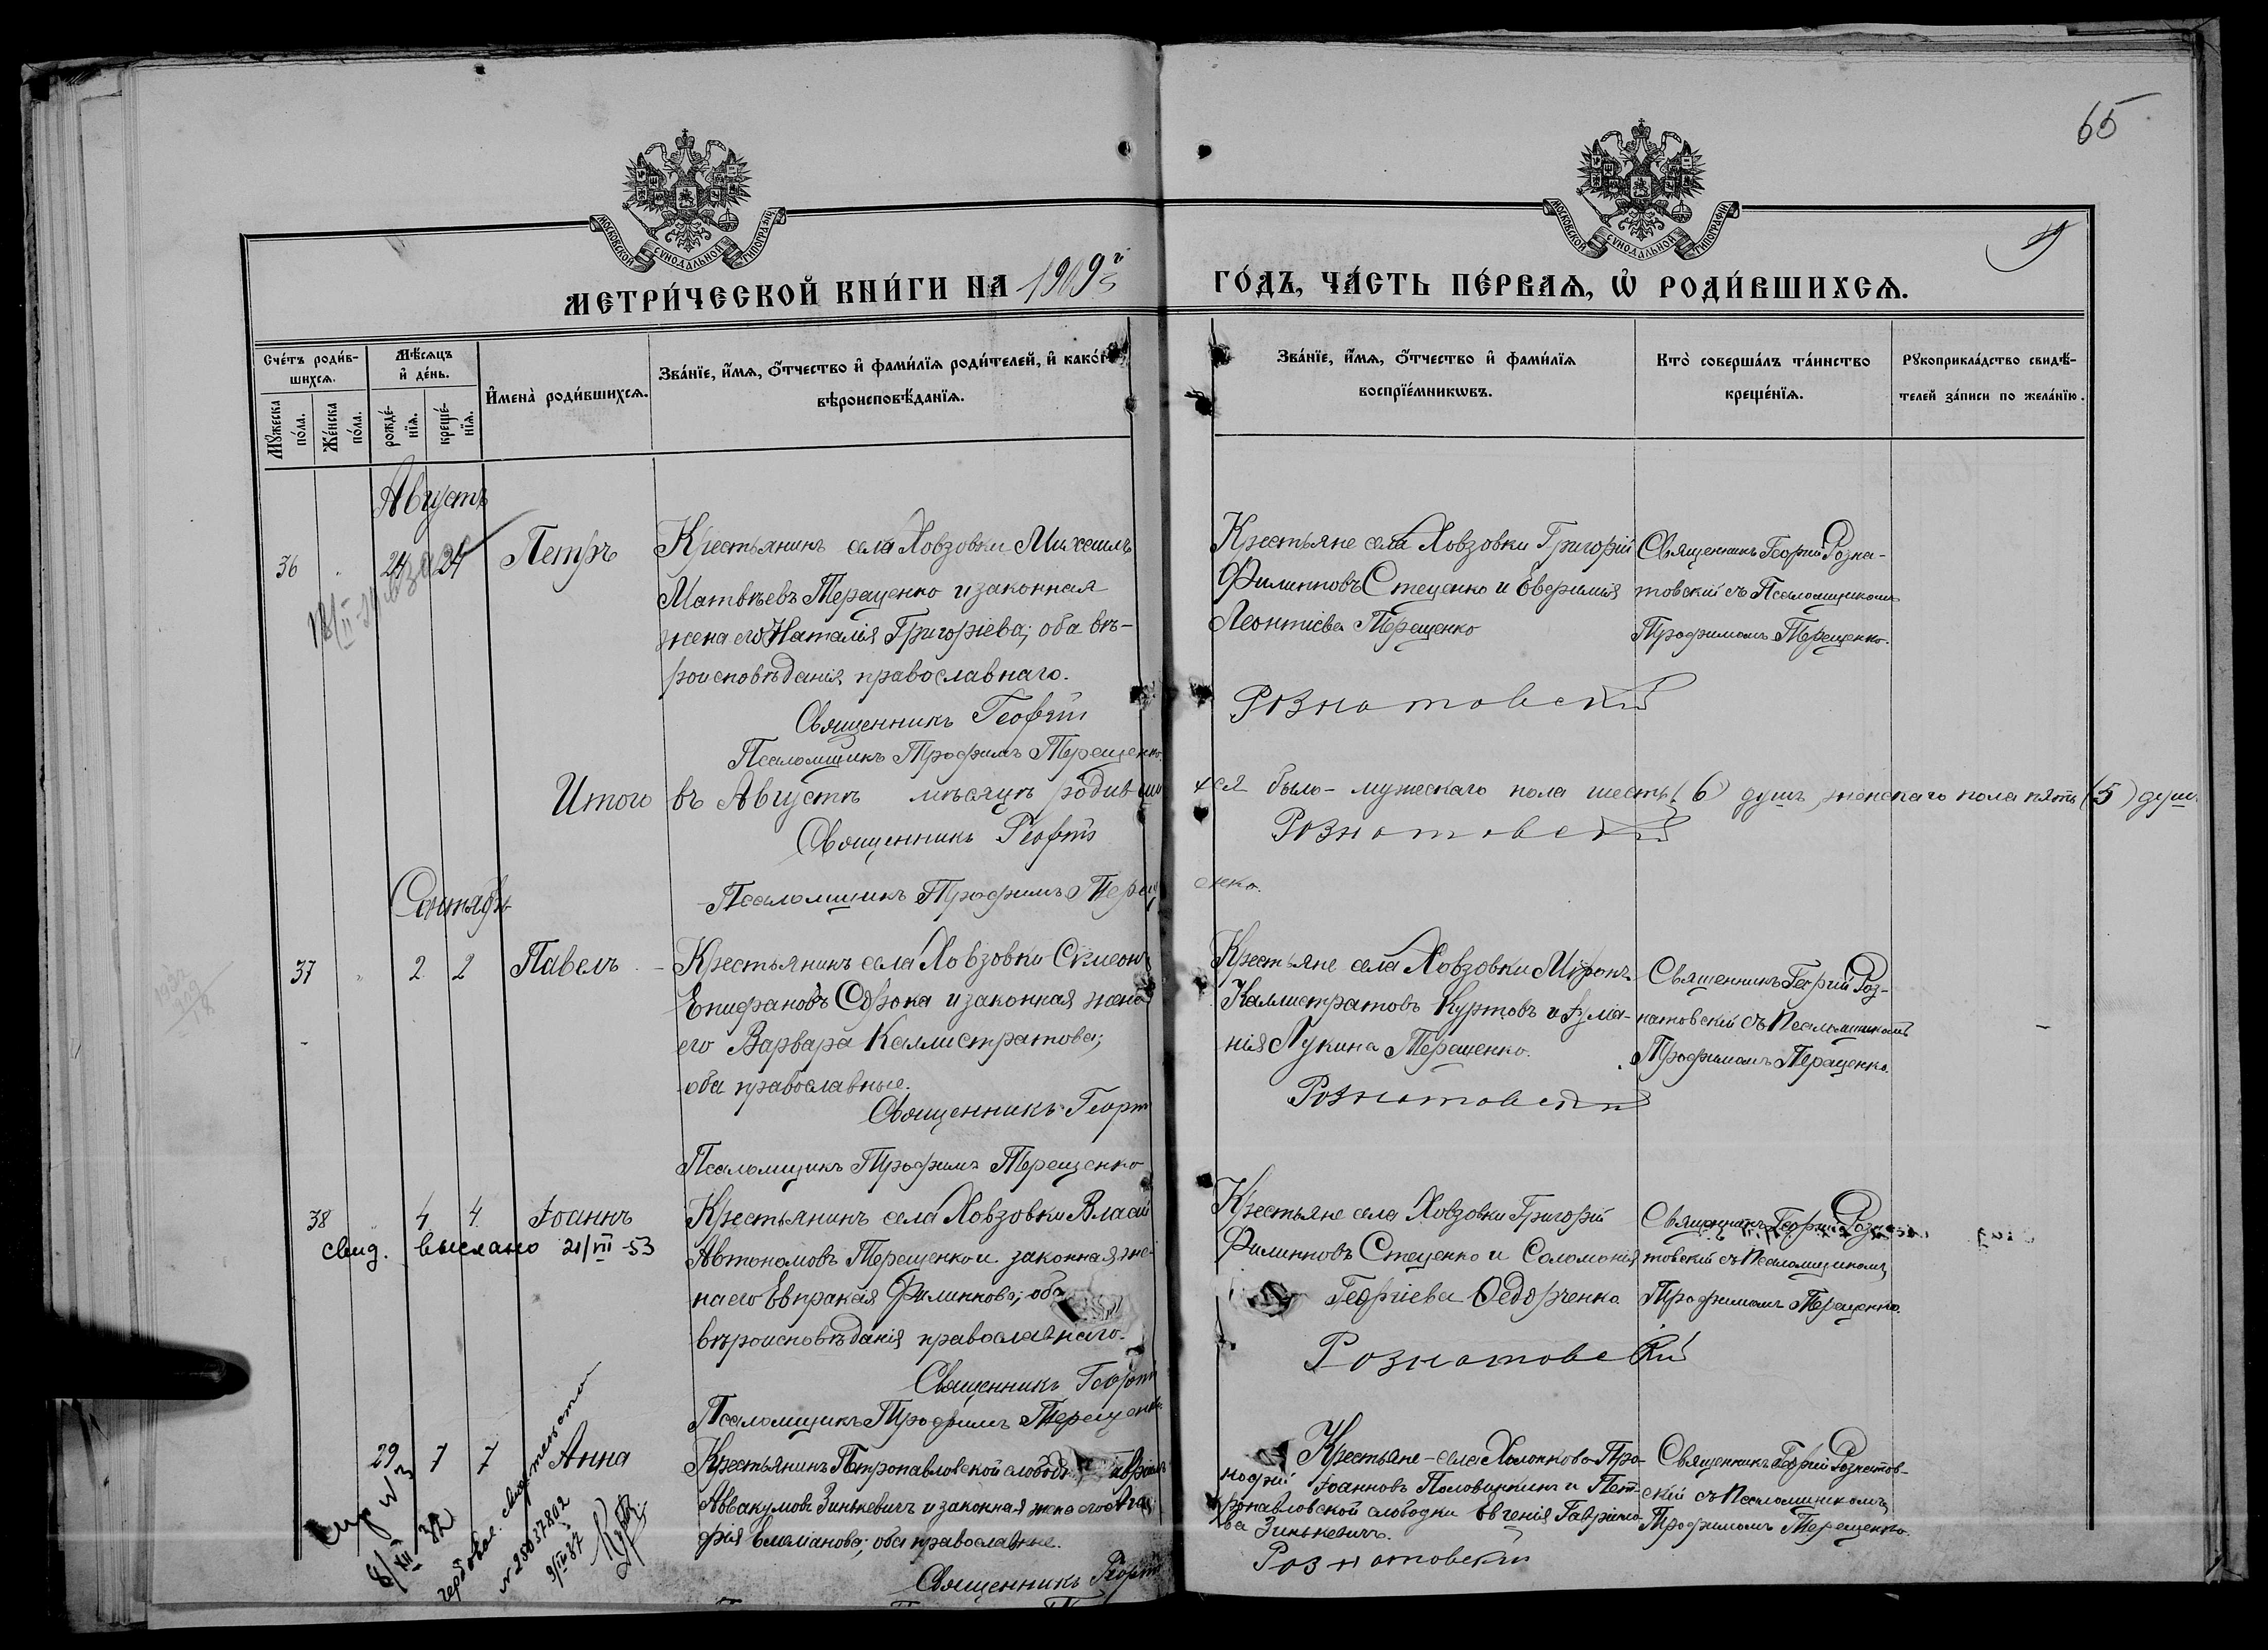 65
МОСКОВСКОЙ СѴНОДАЛЬНОЙ ТИПОГРАФІИ
МОСКОВСКОЙ СѴНОДАЛЬНОЙ ТИПОГРАФІИ
9
МЕТРИ́ЧЕСКОЙ КНИ́ГИ НА 1909й
ГО́ДЪ, ЧА́СТЬ ПЕ́РВАѦ, Ѡ҆ РОДИ́ВШИХСѦ.
Сче́тъ роди́в-
шихсѧ.
Мѣ́сѧцъ
и҆ де́нь.
И҆мена̀ роди́вшихсѧ.
Зва́нїе, и҆́мѧ, ѻ҆́тчество и҆ фами́лїѧ роди́телей, и҆ како́гѡ
вѣроисповѣ́данїѧ.
Мꙋ́жеска
по́ла.
Же́нска
по́ла.
рожде́-
нїѧ.
креще́-
нїѧ.
Зва́нїе, и҆́мѧ, ѻ҆́тчество и҆ фами́лїѧ
воспрїе́мникѡвъ.
Кто̀ соверша́лъ та́инство
креще́нїѧ.
Рꙋкоприкла́дство свидѣ́-
телей за́писи по жела́нїю.
Августъ
36 24 24 Петръ
Крестьянинъ села Ховзовки Михаилъ
Матвѣевъ Терещенко и законная
жена его Наталія Григоріева; оба вѣ-
роисповѣданія православнаго.
Священникъ Георгій
Псаломщикъ Трофимъ Терещенко.
Крестьяне села Ховзовки Григорій
Филипповъ Стеценко и Евфимія
Леонтіева Терещенко
Рознатовскій
Священникъ Георгій Розна-
товскій съ Псаломщикомъ
Трофимомъ Терещенко.
Итого въ Августѣ мѣсяцѣ родивши
хся было - мужескаго пола шесть (6) душъ, женскаго пола пять (5) душ.
Священникъ Георгій
Рознатовскій
Псаломщикъ Трофимъ Терещ
енко.
Сентябрь
37 2 2 Павелъ
Крестьянинъ села Ховзовки Симеонъ
Епифановъ Сорока и законная жена
его Варвара Каллистратова;
оба православные.
Священникъ Георгій
Псаломщикъ Трофимъ Терещенко
Крестьяне села Ховзовки Миронъ
Каллистратовъ Куртовъ и Іулiа-
нія Лукина Терещенко.
Рознатовскій
Священникъ Георгій Роз-
натовскій съ Псаломщикомъ
Трофимомъ Терещенко.
38 4 4. Іоаннъ
свид. выслано 21/VII-53
Крестьянинъ села Ховзовки Власій
Автономовъ Терещенко и законная же-
на его Евпраксія Филиппова; оба
вѣроисповѣданія православнаго.
Священникъ Георгій
Псаломщикъ Трофимъ Терещенко.
Крестьяне села Ховзовки Григорій
Филипповъ Стеценко и Соломонія
Георгіева Федорченко
Рознатовскій
Священникъ Георгій Розна-
товскій съ Псаломщикомъ
Трофимомъ Терещенко.
29 7 7 Анна
8/XII
гербовое. свидетельство
№ 25037802
9/II 87
Крестьянинъ Петропавловской слободки Гавріилъ
Аввакумовъ Зинькевичъ и законная жена его Ага-
фія; оба православные.
Священникъ Георгій
Крестьяне села Холопково Про-
Іоанновъ Половинкинъ и Пет-
ропавловской слободки Евгенія Гавріило-
ва Зинькевичъ.
Рознатовскій
Священникъ Георгій Рознатов-
скій съ Псаломщикомъ
Трофимомъ Терещенко.